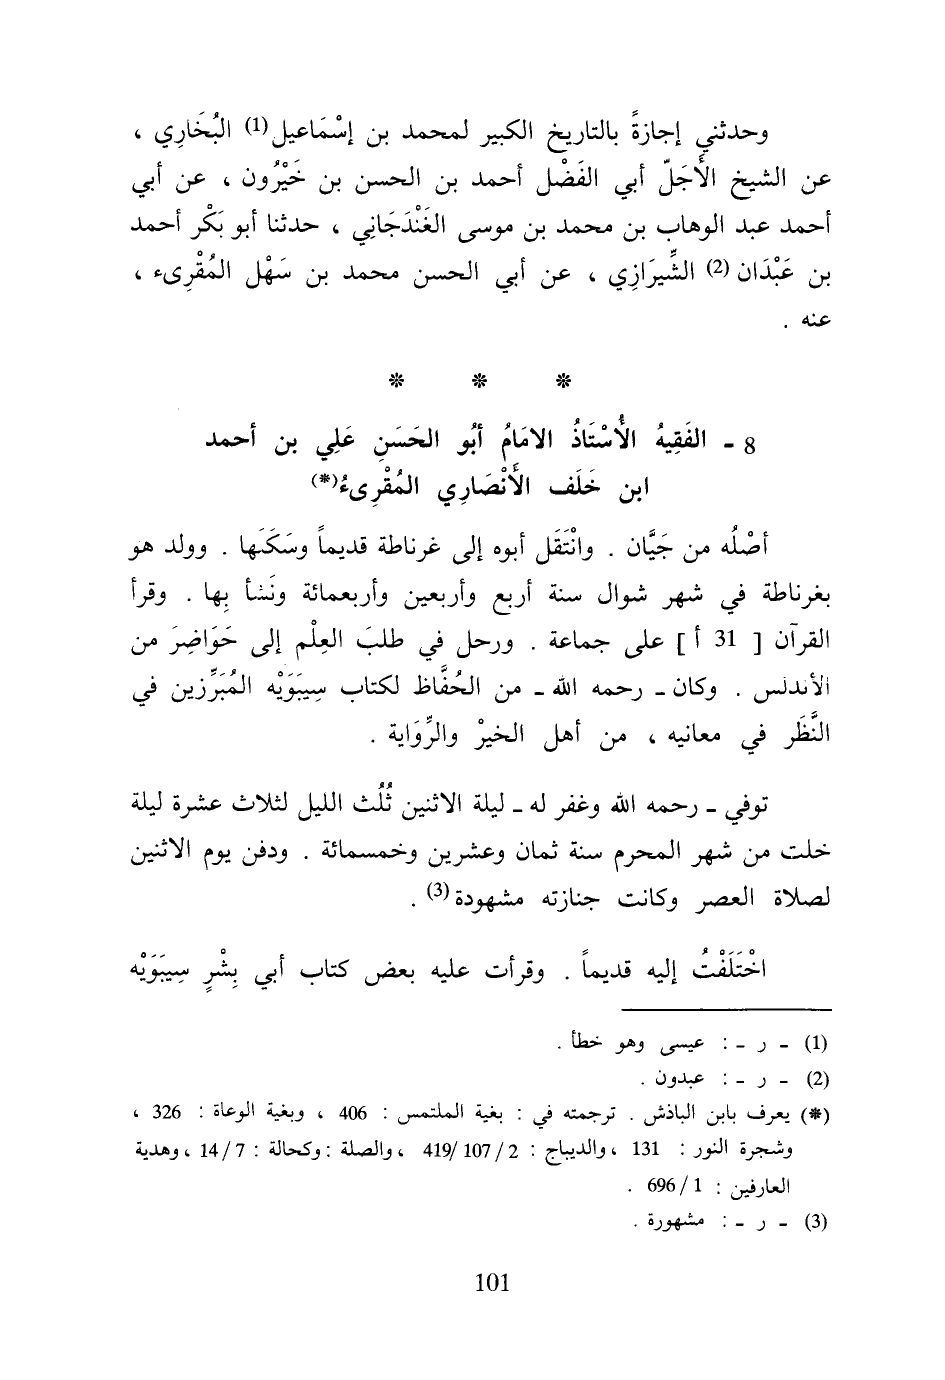 وحدثني إجازةً بالتاريخ الكبير لمحمد بن إسْمَاعيل(1) البُخَاري ،
عن الشيخ الأَجَلّ أبي الفَضْل أحمد بن الحسن بن خَيْرُون ، عن أبي
أحمد عبد الوهاب بن محمد بن موسى الغَنْدَجَانِي ، حدثنا أبو بَكْر أحمد
بن عَبْدَان (2) الشِّيرَازِي ، عن أبي الحسن محمد بن سَهْل المُقْرِىء ،
عنه .
* * *
8 ـ الفَقِيهُ الأُسْتَاذُ الامَامُ أبُو الحَسَنِ عَلِي بن أحمد
ابن خَلَف الأَنْصَارِي المُقْرِىءُ(*)
أصْلُه من جَيَّان . وانْتَقَل أبوه إلى غرناطة قديماً وسَكَنَها . وولد هو
بغرناطة في شهر شوال سنة أربع وأربعين وأربعمائة ونَشأ بِها . وقرأ
القرآن [ 31 أ ] على جماعة . ورحل في طلبَ العِلْم إلى حَوَاضِرَ من
الأندلس . وكان ـ رحمه الله ـ من الحُفَّاظ لكتاب سِيبَوَيْه المُبَرِّزين في
النَّظَر في معانيه ، من أهل الخيرْ والرِّوَاية .
توفي ـ رحمه الله وغفر له ـ ليلة الاثنين ثُلُث الليل لثلاث عشرة ليلة
خلت من شهر المحرم سنة ثمان وعشرين وخمسمائة . ودفن يوم الاثنين
لصلاة العصر وكانت جنازته مشهودة(3) .
اخْتَلَفْتُ إليه قديماً . وقرأت عليه بعض كتاب أبي بِشْرٍ سِيبَوَيْه
(1) ـ ر ـ : عيسى وهو خطأ .
(2) ـ ر ـ : عبدون .
(*) يعرف بابن الباذش . ترجمته في : بغية الملتمس : 406 ، وبغية الوعاة : 326 ،
وشجرة النور : 131 ، والديباج : 2 / 107 /419 ، والصلة : وكحالة : 7 / 14 ، وهدية
العارفين : 1 / 696 .
(3) ـ ر ـ : مشهورة .
101